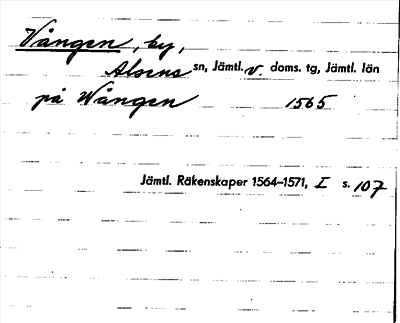 Vången, by,
Alsens sn, Jämtl. v. doms. tg, Jämtl. län
på Wången 1565
Jämtl. Räkenskaper 1564–1571, I s. 107